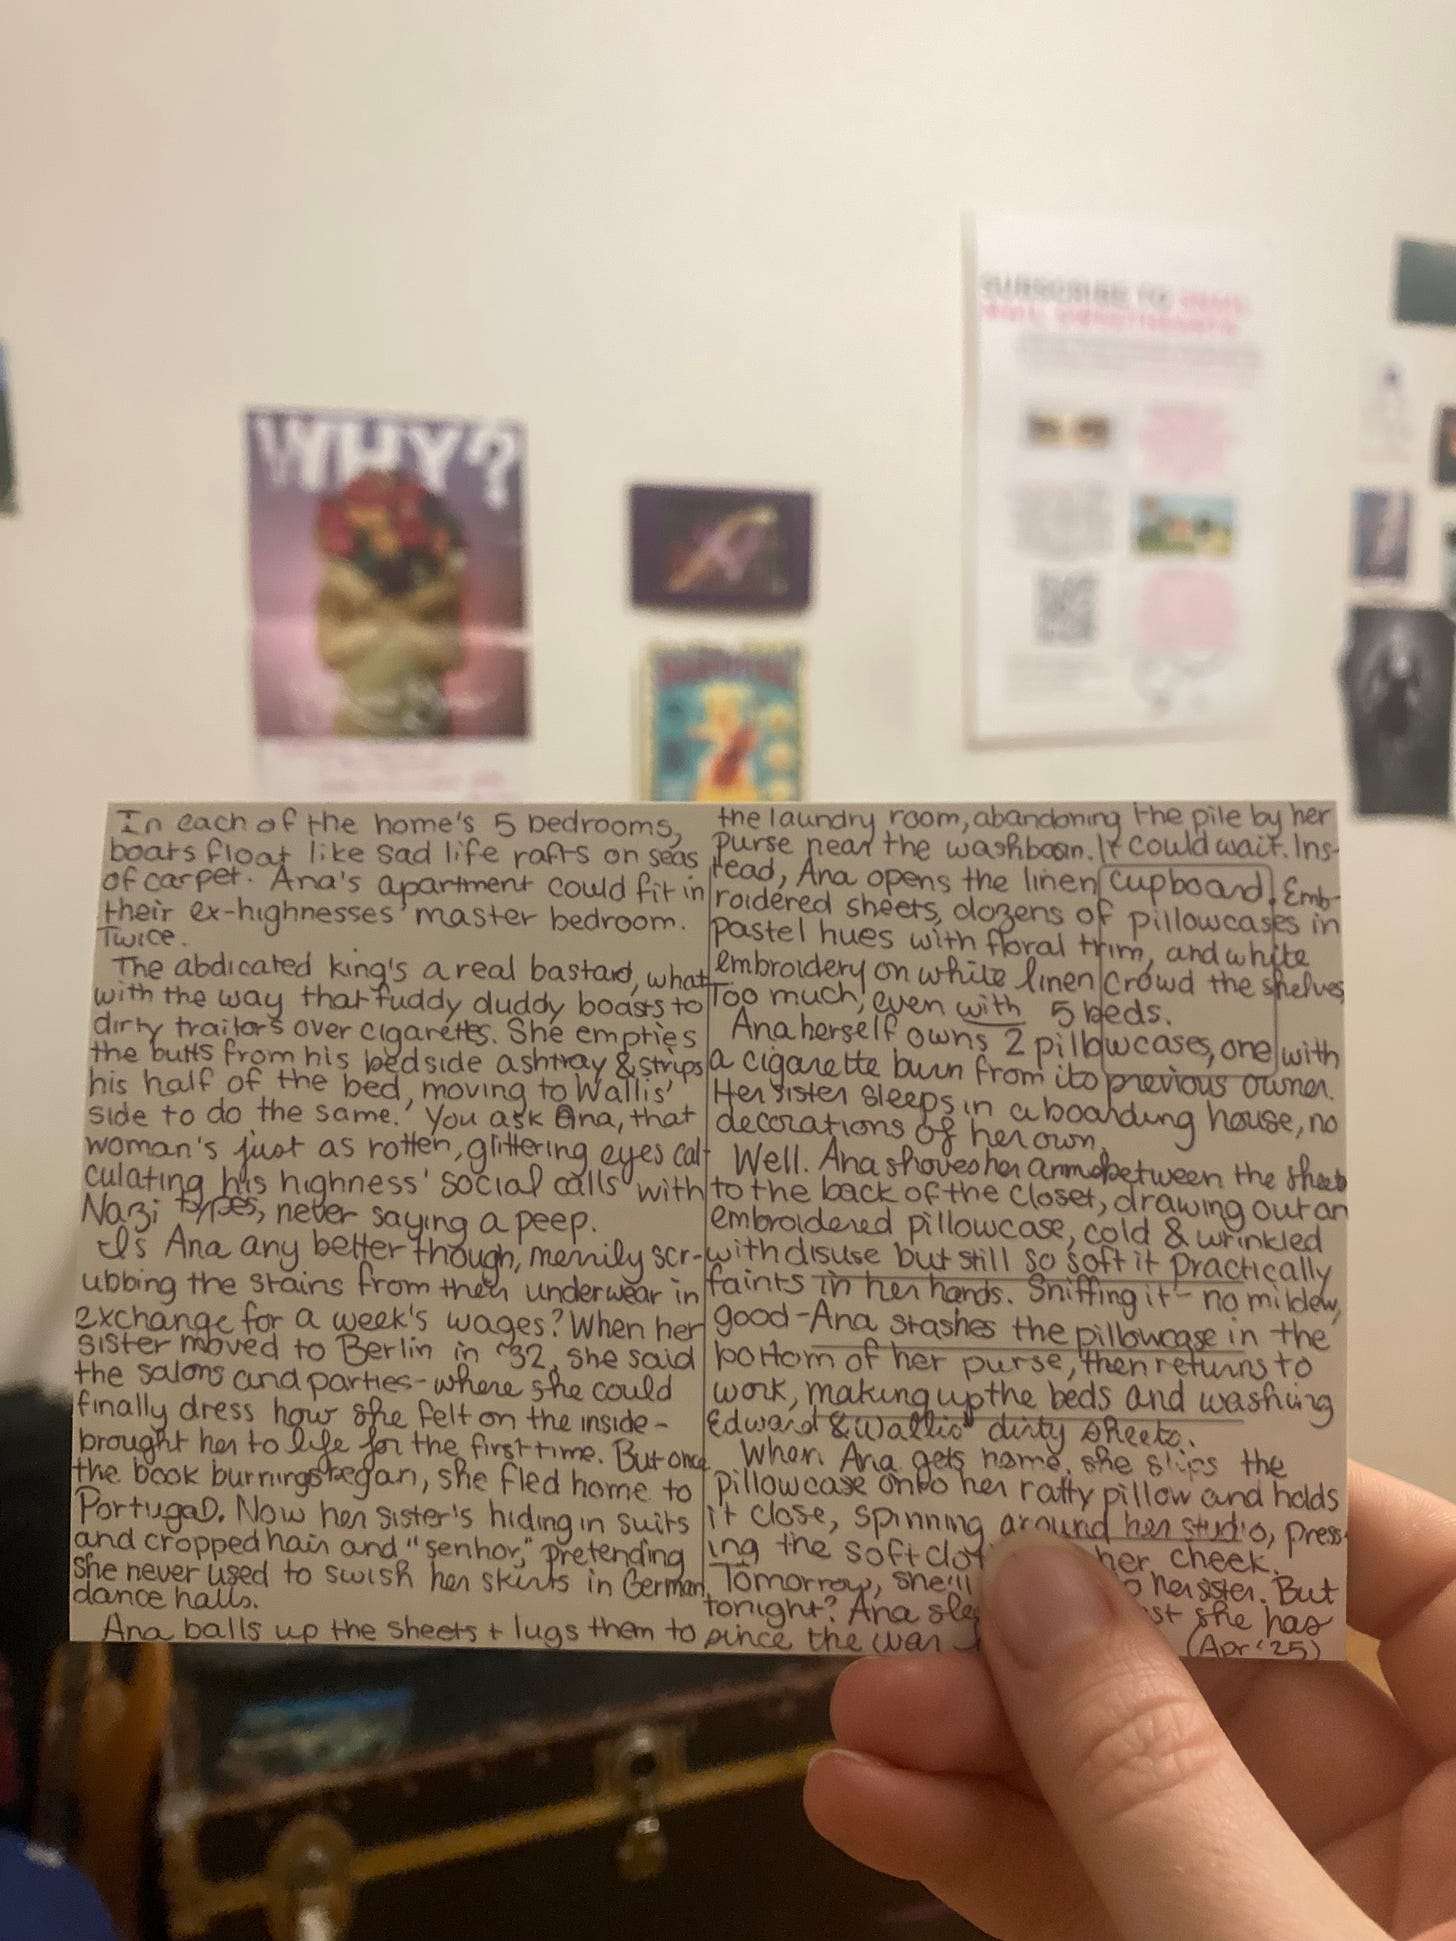 WHY?
SUBSCRIBE TO
In each of the home's 5 bedrooms,
boats float like sad life rafts on seas
of carpet. Ana's apartment could fit in
their ex-highnesses' master bedroom.
Twice.
The abdicated king's a real bastard, what
with the way that fuddy duddy boasts to
dirty traitors over cigarettes. She empties
the butts from his bedside ashtray & strips
his half of the bed, moving to Wallis'
side to do the same. You ask Ana, that
woman's just as rotten, glittering eyes cal-
culating his highness' social calls with
Nazi types, never saying a peep.
Is Ana any better though, merrily scr-
ubbing the stains from their underwear in
exchange for a week's wages? When her
sister moved to Berlin in '32, she said
the salons and parties - where she could
finally dress how she felt on the inside -
brought her to life for the first time. But once
the book burnings began, she fled home to
Portugal. Now her sister's hiding in suits
and cropped hair and "senhor," pretending
she never used to swish her skirts in German
dance halls.
Ana balls up the sheets + lugs them to
the laundry room, abandoning the pile by her
purse near the washbasin. It could wait. Ins-
tead, Ana opens the linen cupboard. Emb-
roidered sheets, dozens of pillowcases in
pastel hues with floral trim, and white
embroidery on white linen crowd the shelves.
Too much, even with 5 beds.
Ana herself owns 2 pillowcases, one with
a cigarette burn from its previous owner.
Her sister sleeps in a boarding house, no
decorations of her own.
Well. Ana shoves her arm between the sheets
to the back of the closet, drawing out an
embroidered pillowcase, cold & wrinkled
with disuse but still so soft it practically
faints in her hands. Sniffing it - no mildew,
good - Ana stashes the pillowcase in the
bottom of her purse, then returns to
work, making up the beds and washing
Edward & Wallis' dirty sheets.
When Ana gets home, she slips the
pillowcase onto her ratty pillow and holds
it close, spinning around her studio, press-
ing the soft her cheek.
Tomorrow, she'll her sister. But
tonight? Ana she has
since the war
(Apr '25)